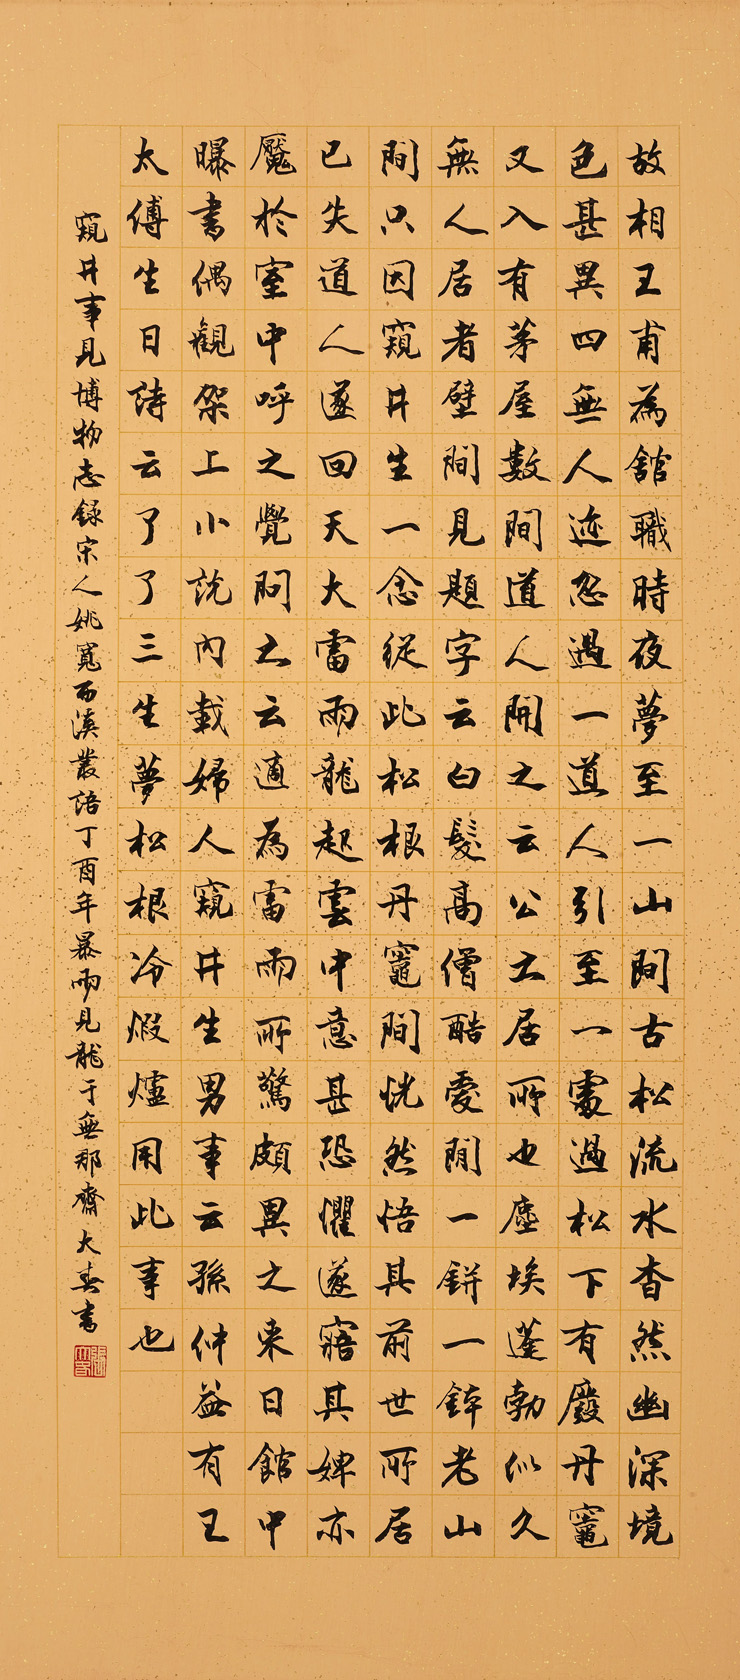 故相王甫為舘職時夜夢至一山間古松流水杳然幽深境
色甚異四無人迹忽過一道人引至一處過松下有廢丹竈
又入有茅屋數間道人開之云公之居所也塵埃蓬勃似久
無人居者壁間見題字云白髮高僧酷愛閒一鉼一鉢老山
間只因窺井生一念從此松根丹竈間恍然悟其前世所居
已失道人遂回天大雷雨龍起雲中意甚恐懼遂寤其婢亦
魘於室中呼之覺問之云適為雷雨所驚頗異之來日舘中
曝書偶觀架上小說內載婦人窺井生男事云孫仲益有王
太傅生日詩云了了三生夢松根冷煅爐用此事也
窺井事見博物志錄宋人姚寬西溪叢語丁酉年暴雨見龍于無那齋大春書